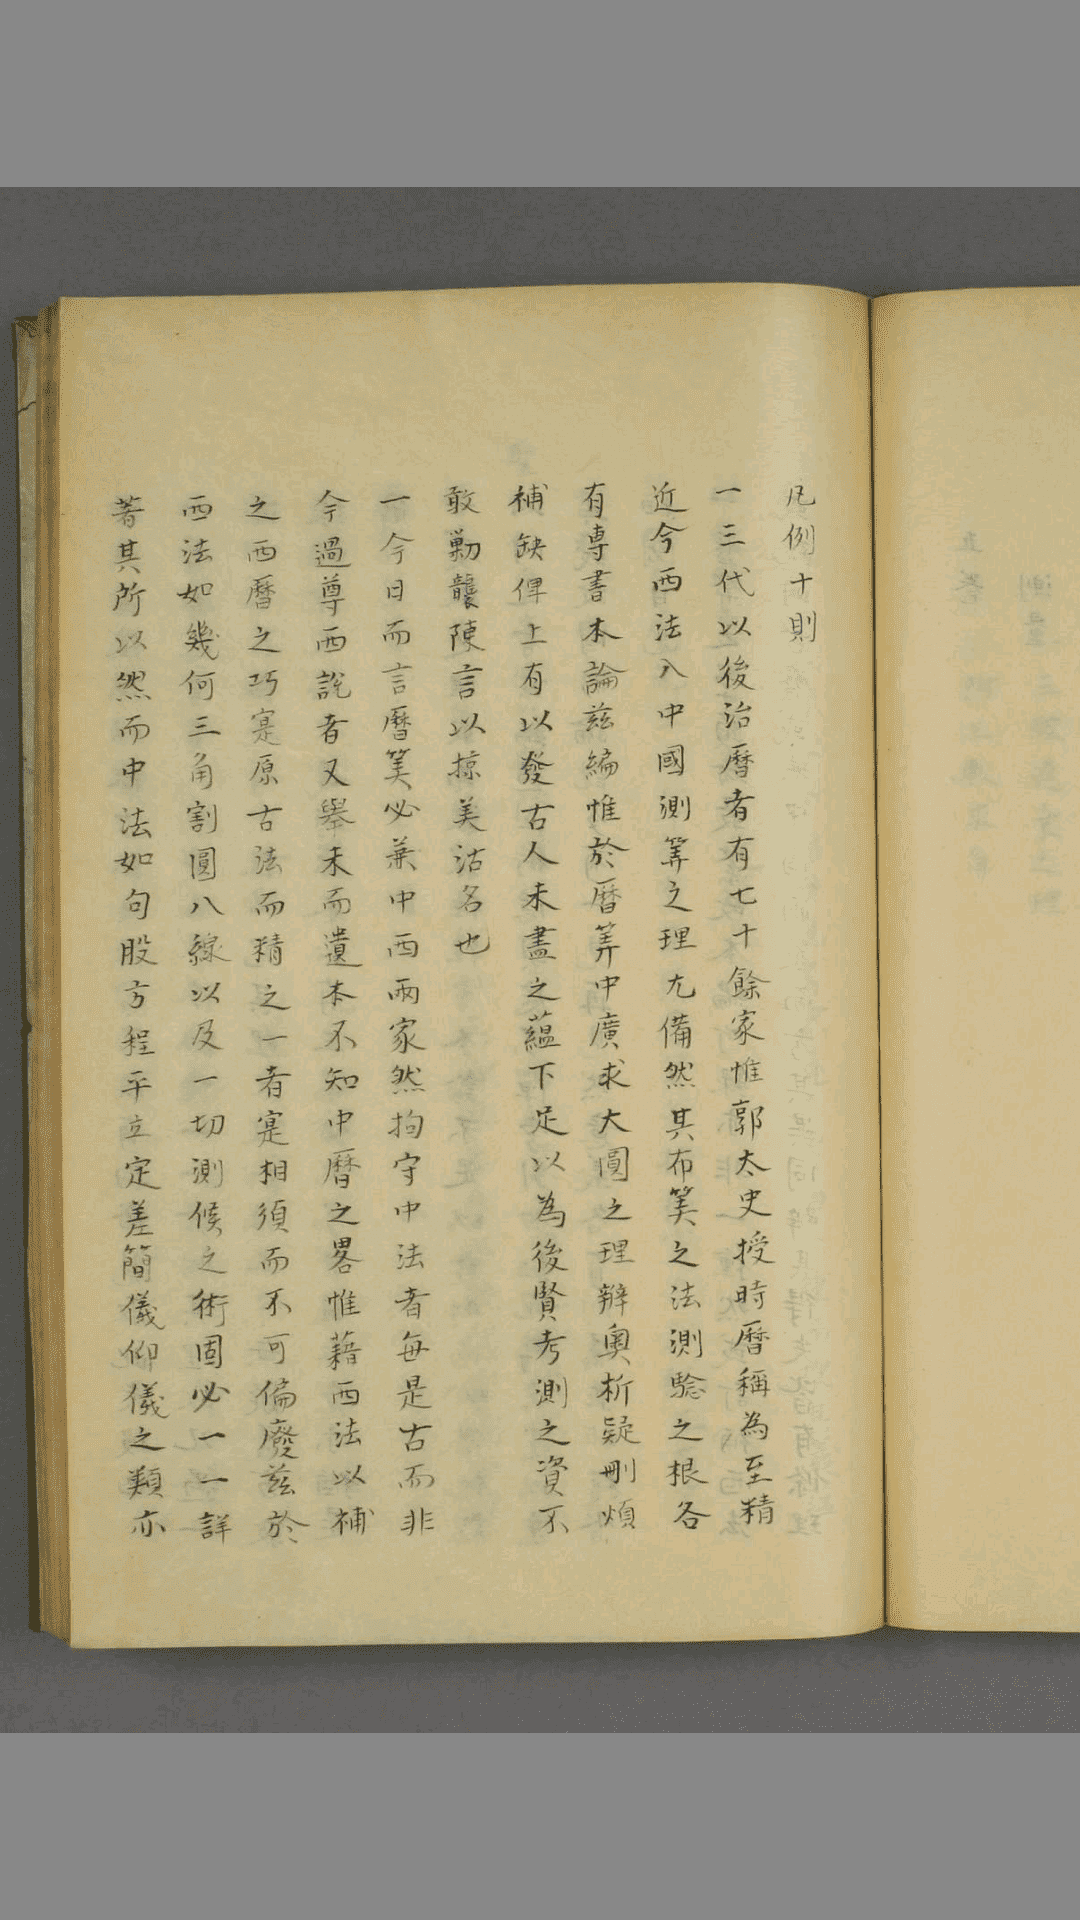 凡例十則
一三代以後治曆者有七十餘家惟郭太史授時曆稱為至精
近今西法入中國測筭之理尤備然其布筭之法測驗之根各
有專書本論茲編惟於曆筭中廣求大圓之理辨奧析疑刪煩
補缺俾上有以發古人未盡之蘊下足以為後賢考測之資不
敢勦襲陳言以掠美沽名也
一今日而言曆筭必兼中西兩家然拘守中法者每是古而非
今過尊西說者又舉末而遺本不知中曆之畧惟藉西法以補
之西曆之巧寔原古法而精之一者寔相須而不可偏廢茲於
西法如幾何三角割圓八線以及一切測候之術固必一一詳
著其所以然而中法如句股方程平立定差簡儀仰儀之類亦